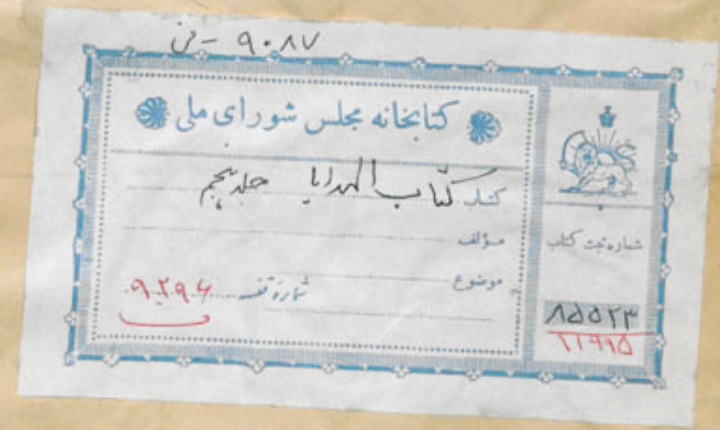 ۹۰۸۷ - فن
کتابخانه مجلس شورای ملی
کتاب کتاب الهدایا جلد پنجم
مؤلف
موضوع
شماره قفسه ۹۰۲۹۰۶
شماره ثبت کتاب
۸۵۵۲۳
۲۲۹۹۵